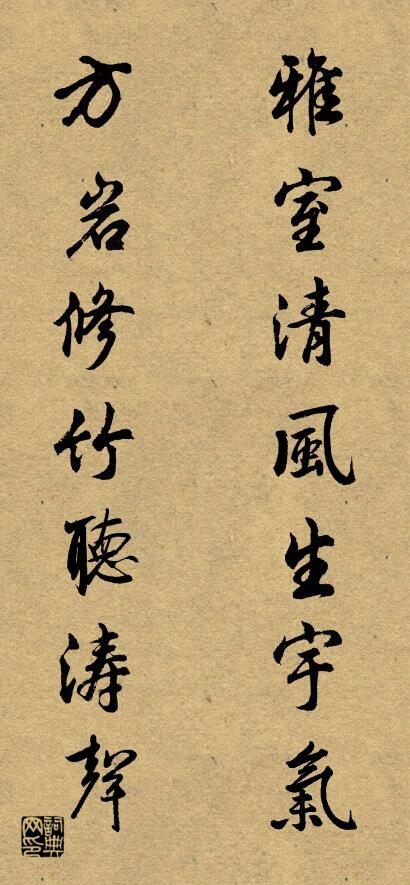 雅室清風生宇氣
方岩修竹聽涛聲
詞典网印